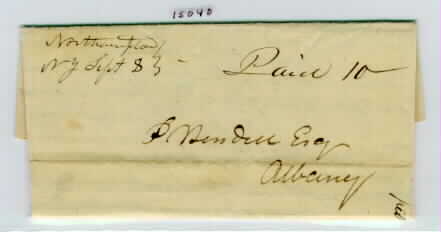 15040
Northampton
NY Sept 8
Paid 10
P Wendell Esq
Albany